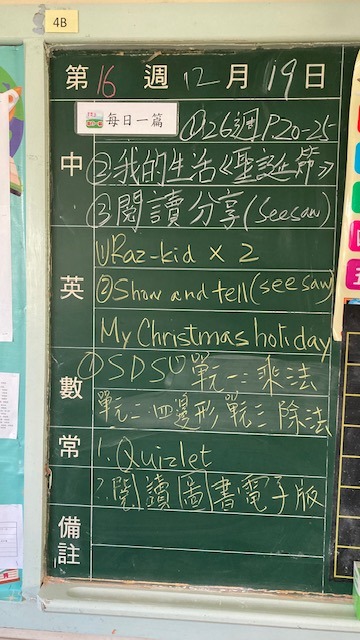 4B
第16週12月19日
中 每日一篇 ①26週P20-25
②我的生活《聖誕節》
③閱讀分享(seesaw)
英 ①Raz-kid × 2
②Show and tell(seesaw)
My Christmas holiday
數 ①SDS 單一:乘法
單二:四邊形 單三 除法
常 1. Quizlet
2.閱讀圖書電子版
備註